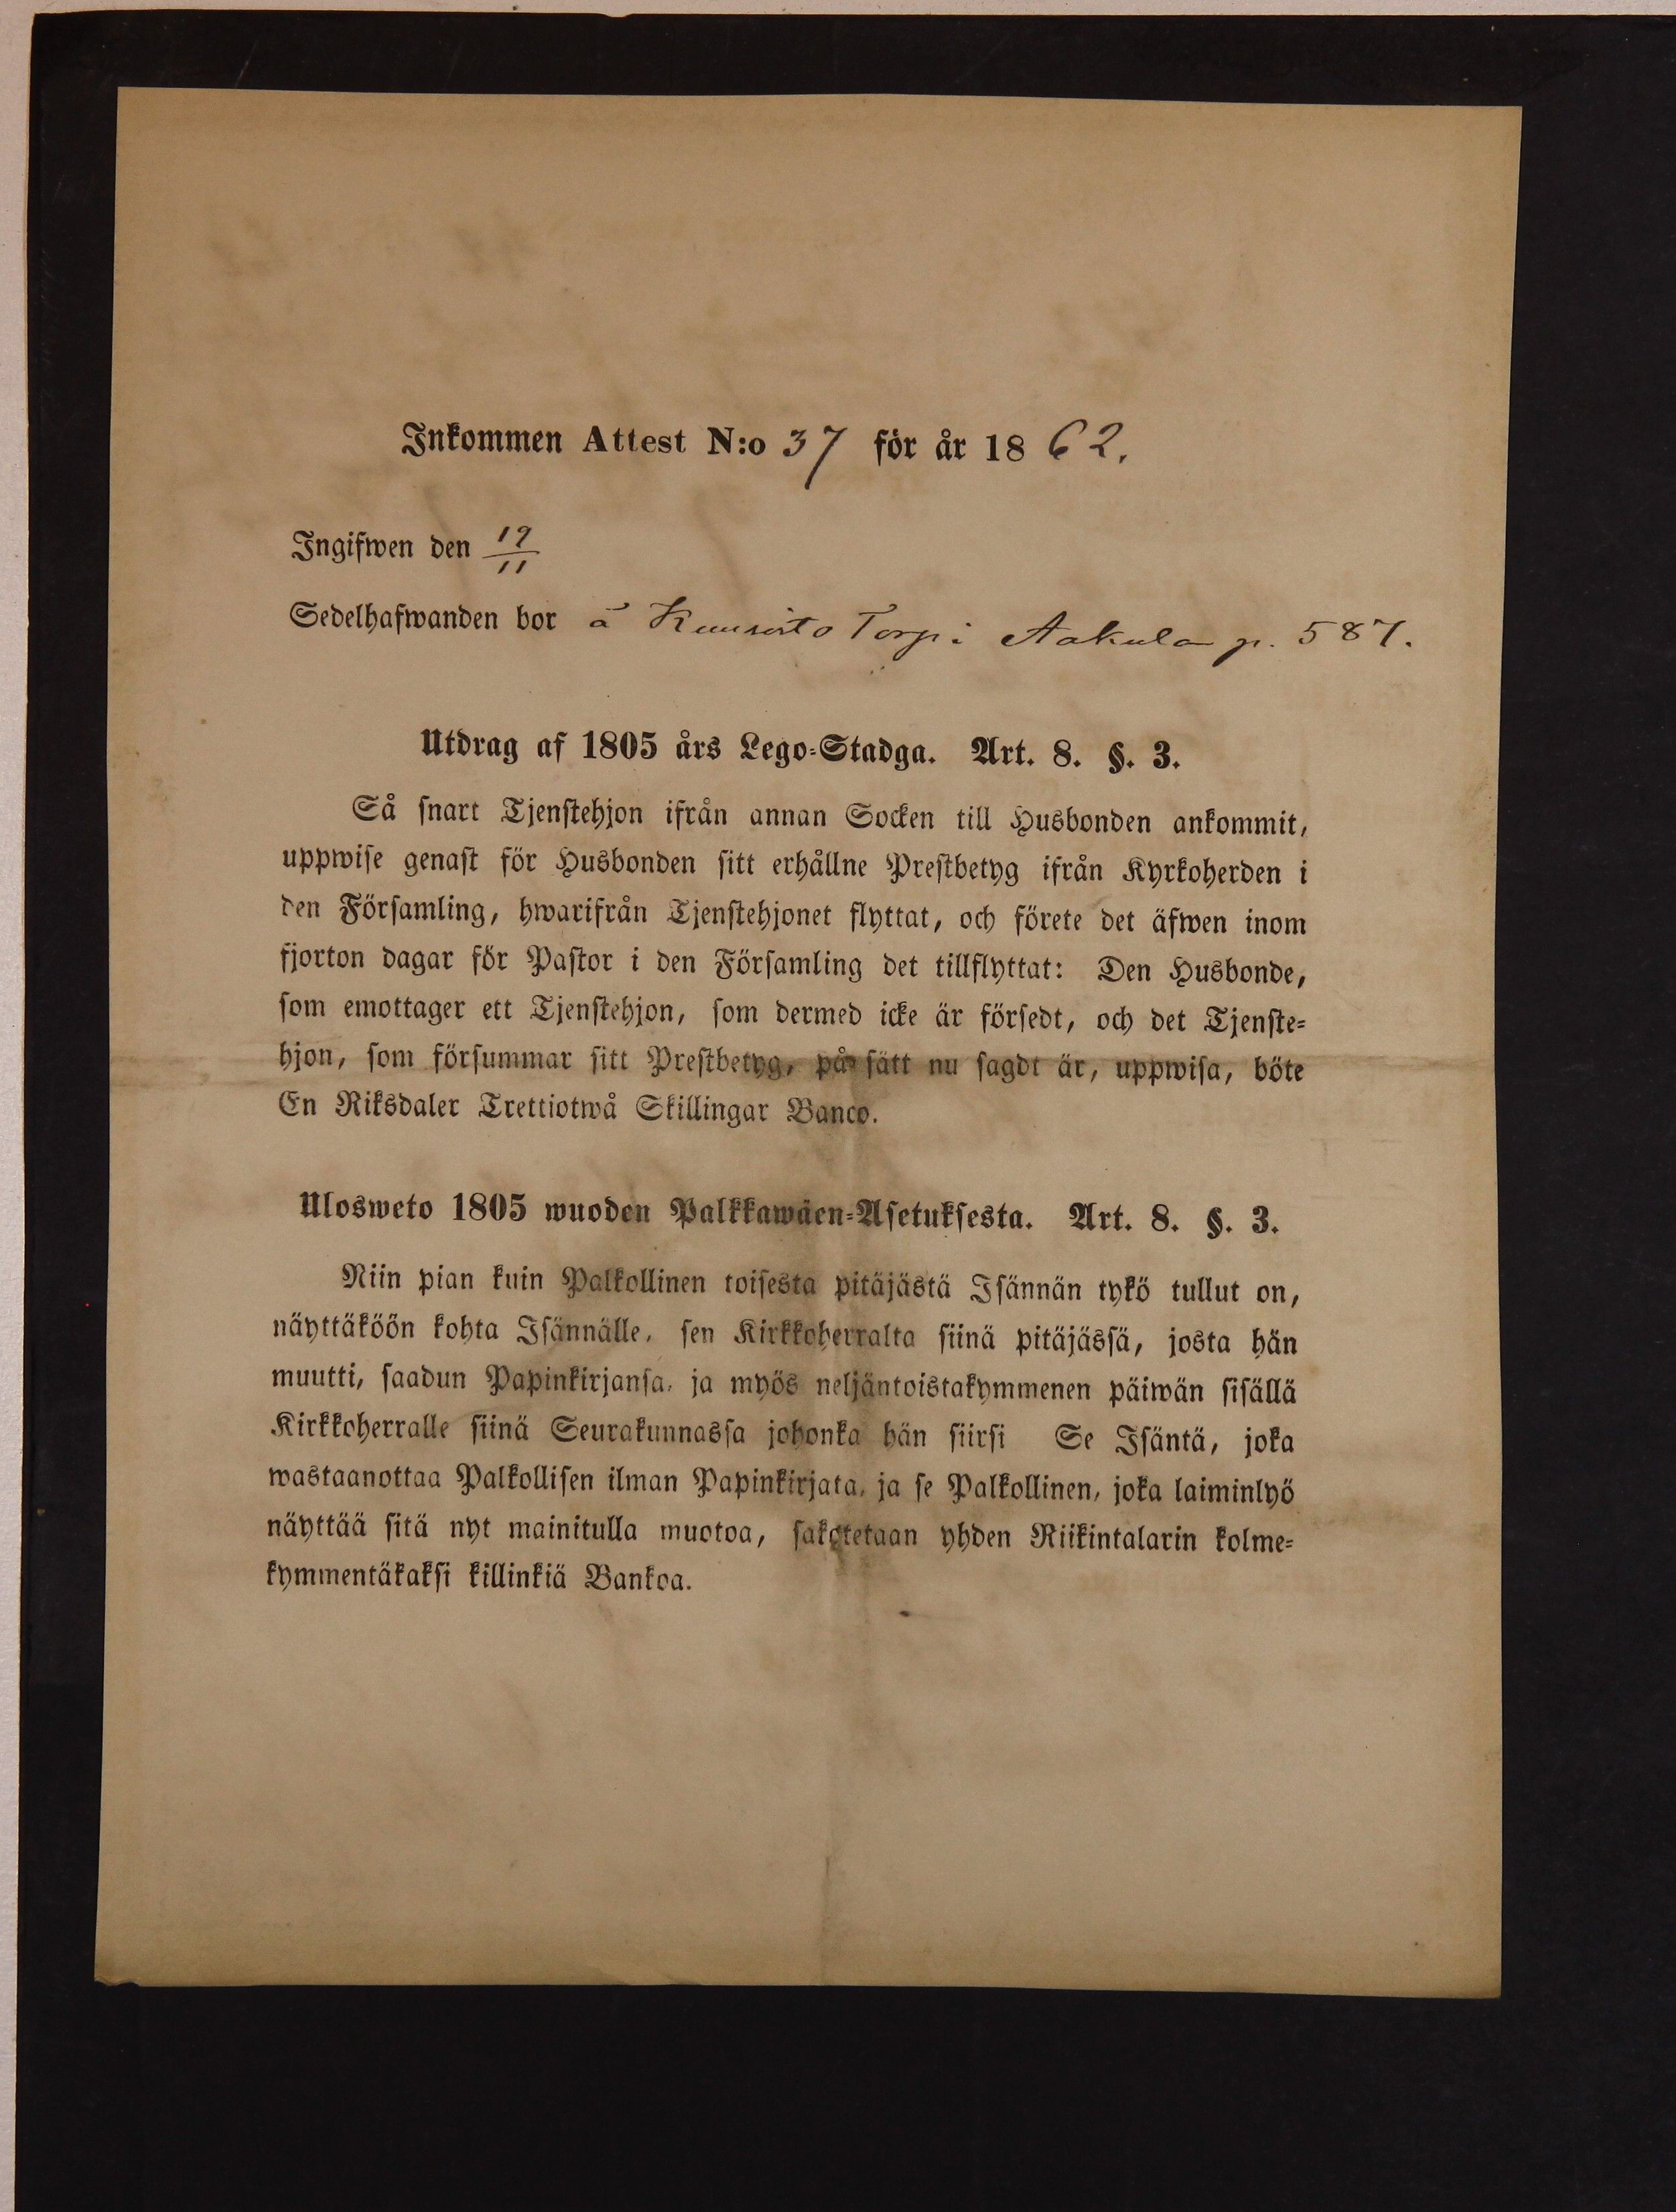 Inkommen Attest N:o 37 för år 1862.
Ingifwen den 19/11
Sedelhafwanden bor å Kuusisto Torp i Aakula p. 587.
Utdrag af 1805 års Lego-Stadga. Art. 8. §. 3.
Så snart Tjenstehjon ifrån annan Socken till Husbonden ankommit,
uppwise genast för Husbonden sitt erhållne Prestbetyg ifrån Kyrkoherden i
den Församling, hwarifrån Tjenstehjonet flyttat, och förete det äfwen inom
fjorton dagar för Pastor i den Församling det tillflyttat: Den Husbonde,
som emottager ett Tjenstehjon, som dermed icke är försedt, och det Tjenste-
hjon, som försummar sitt Prestbetyg, på sätt nu sagdt är, uppwisa, böte
En Riksdaler Trettiotwå Skillingar Banco.
Ulosweto 1805 wuoden Palkkawäen-Asetuksesta. Art. 8. §. 3.
Niin pian kuin Palkollinen toisesta pitäjästä Isännän tykö tullut on,
näyttäköön kohta Isännälle, sen Kirkkoherralta siinä pitäjässä, josta hän
muutti, saadun Papinkirjansa, ja myös neljäntoistakymmenen päiwän sisällä
Kirkkoherralle siinä Seurakunnassa johonka hän siirsi Se Isäntä, joka
wastaanottaa Palkollisen ilman Papinkirjata, ja se Palkollinen, joka laiminlyö
näyttää sitä nyt mainitulla muotoa, sakotetaan yhden Riikintalarin kolme-
kymmentäkaksi killinkiä Bankoa.